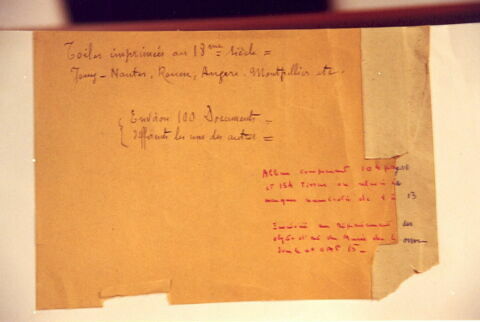 Toiles imprimées au 18me siècle =
Jouy - Nantes, Rouen, Angers, Montpellier etc.
Environ 100 Document =
différents les uns des autres =
Album comprenant 104 pages
et 154 tissus ou
manque numéroté de 1 à 53
au Département des
objets d'art du Musée du